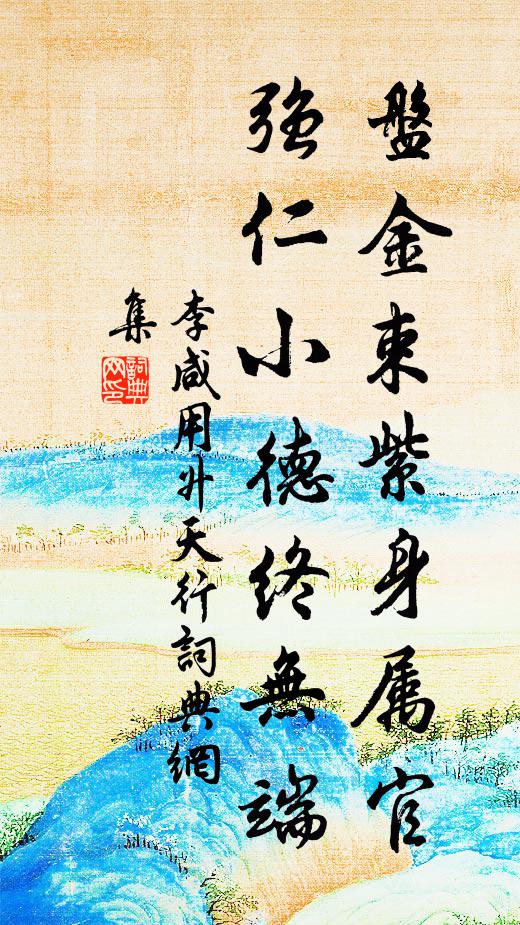 盤金束紫身属官
強仁小德終無端
李咸用外天行詞典網
集
詞典
网印